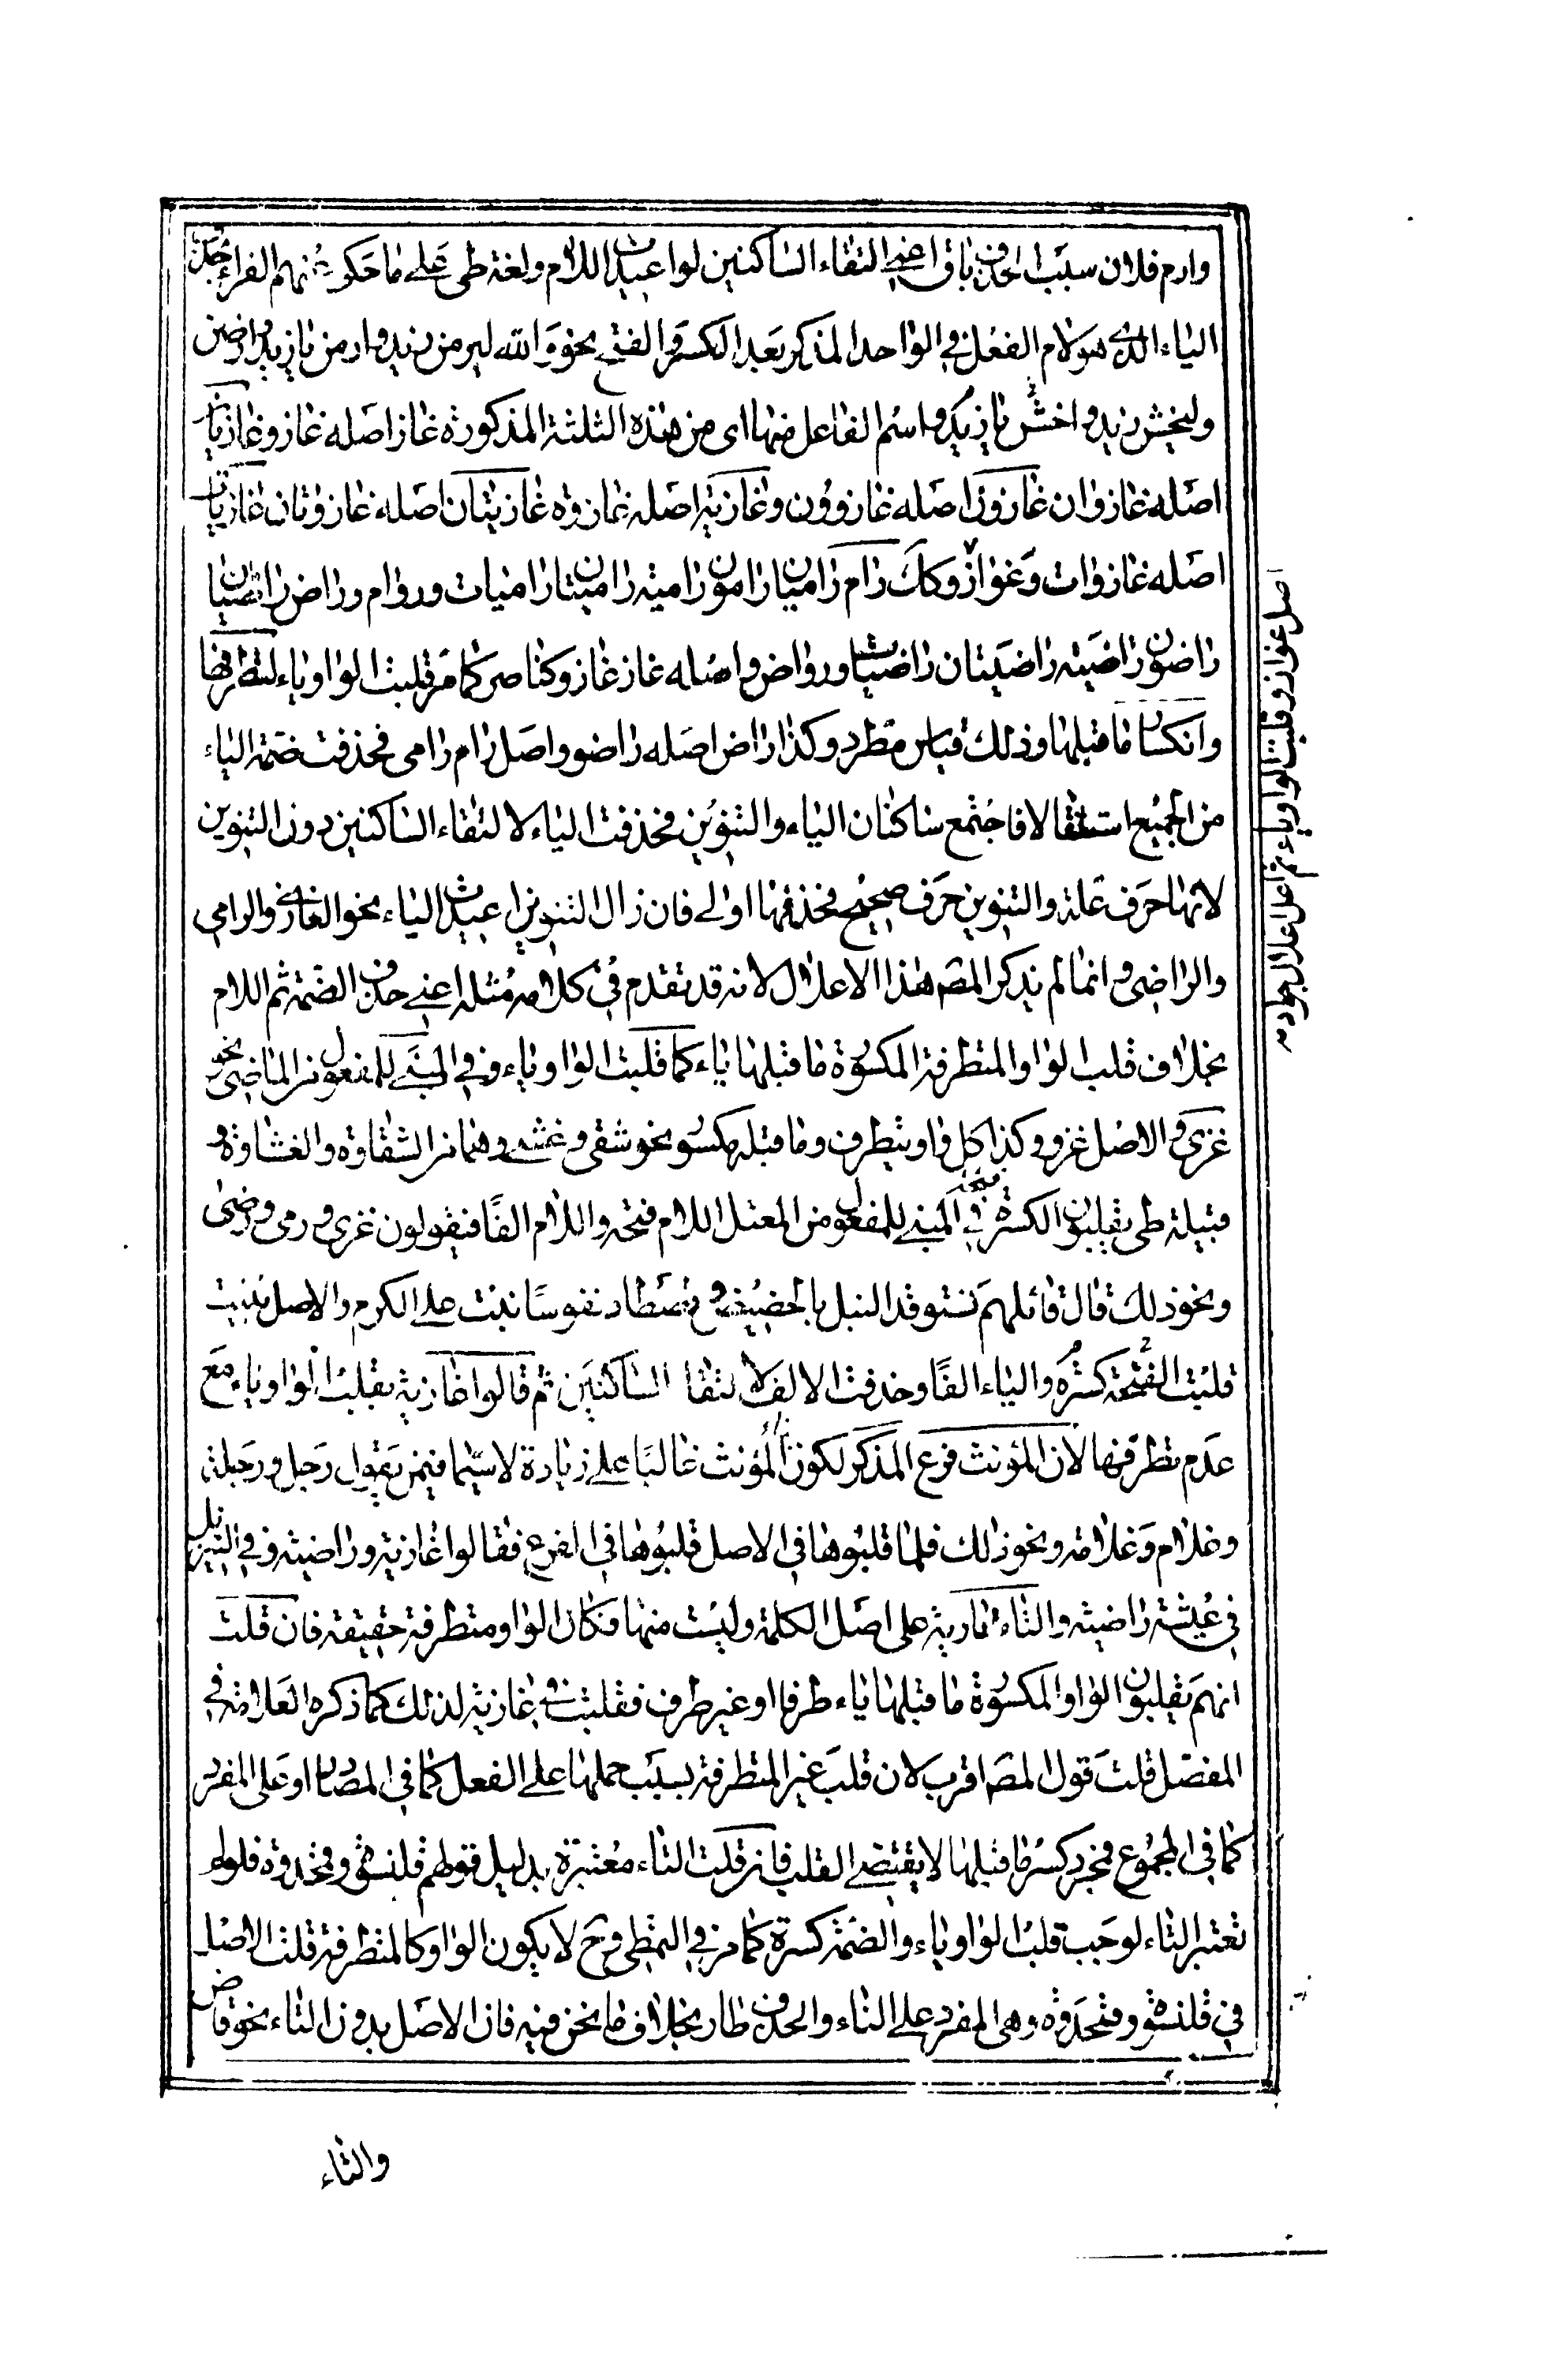 وارم فلان سبب الحذف باق اعنى التقاء الساكنين لو اعيدت اللام ولغة طى على ما حكى عنهم الفراء حذف
الياء الذى هو لام الفعل فى الواحد المذكر بعد الكسر والفتح نحو والله ليرمن زيد وارمن يا زيد وليرضين
وليخش زيد واخش يا زيد واسم الفاعل منها اى من هذه الثلثة المذكورة غاز اصله غازو غازيان
اصله غازوان غازون اصله غازوون وغازية اصله غازوة غازيتان اصله غازوتان غازيات
اصله غازوات وغواز وكك رام راميان رامون رامية راميتان راميات وروام وراض راضيان
راضون راضية راضيتان راضيات ورواض واصله غاز غازو كناصر كما مر قلبت الواو ياء لتطرفها
وانكسار ما قبلها وذلك قياس مطرد وكذا راض اصله راضو واصل رام رامى فحذفت ضمة الياء
من الجميع استثقالا فاجتمع ساكنان الياء والتنوين فحذفت الياء لالتقاء الساكنين دون التنوين
لانها حرف علة والتنوين حرف صحيح فحذفها اولى فان زال التنوين اعيدت الياء نحو الغازى والرامى
والراضى وانما لم يذكر المصه هذا الاعلال لانه قد تقدم فى كلامه مثله اعنى حذف الضمة ثم اللام
بخلاف قلب الواو المتطرفة المكسورة ما قبلها ياء كما قلبت الواو ياء فى المبنى للمفعول من الماضى نحو
غزى والاصل غزو وكذا كل واو يتطرف وما قبله مكسور نحو شقى وغشى وهما من الشقاوة والغشاوة و
قبيلة طى يقلبون الكسرة فى المبنى للمفعول من المعتل اللام فتحة واللام الفا فيقولون غزى ورمى ورضى
ونحو ذلك قال قائلهم نستوقد النبل بالحضيض ونصطاد نفوسا بنت على الكرم والاصل بنيت
قلبت الفتحة كسرة والياء الفا وحذفت الالف لالتقاء الساكنين ثم قالوا غازية بقلب الواو ياء مع
عدم تطرفها لان المؤنث فرع المذكر لكون المؤنث غالبا على زيادة لا سيما فيمن يقول رجل ورجلة
وغلام وغلامة ونحو ذلك فلما قلبوها فى الاصل قلبوها فى الفرع فقالوا غازية وراضية وفى التنزيل
فى عيشة راضية والتاء طارية على اصل الكلمة وليست منها فكان الواو متطرفة حقيقة فان قلت
انهم يقلبون الواو المكسورة ما قبلها ياء طرفا او غير طرف فقلبت فى غازية لذلك كما ذكره العلامة فى
المفصل قلت قول المصه اقرب لان قلب غير المتطرفة بسبب حملها على الفعل كما فى المصادر او على المفرد
كما فى الجموع فمجرد كسر ما قبلها لا يقتضى القلب فان قلت التاء معتبرة بدليل قولهم قلنسوة وقمحدوة فلو لم
تعتبر التاء لوجب قلب الواو ياء والضمة كسرة كما مر فى التمطى وح لا يكون الواو كالمتطرفة قلت الاصل
فى قلنسوة وقمحدوة وهى المفرد على التاء والحذف طار بخلاف ما نحن فيه فان الاصل بدون التاء نحو قاض
والتاء
اصل غواز غوازو قلبت الواو ياء ثم اعل اعلال جوار منه